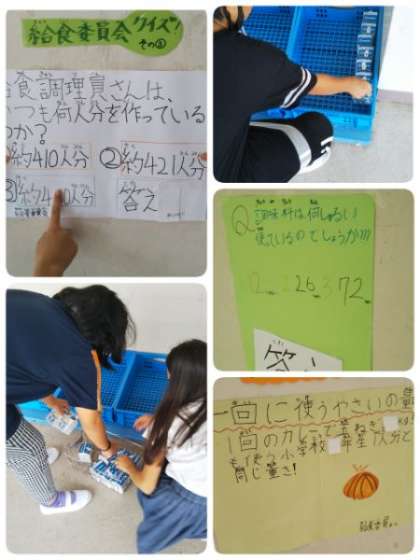 給食委員会クイズ!
その③
給食調理員さんは、
いつも何人分を作っている
のか?
①約410人分
②約421人分
③約4 0人分
答え
給食委員会
Q 調味料は何しゅるい
使っているのでしょうか!!!
12 226 372
答え
一回に使うやさいの量
1回のカレーで玉ねぎ kg!
も使う小学校 年生 人分と
同じ重さ!
給食委員会